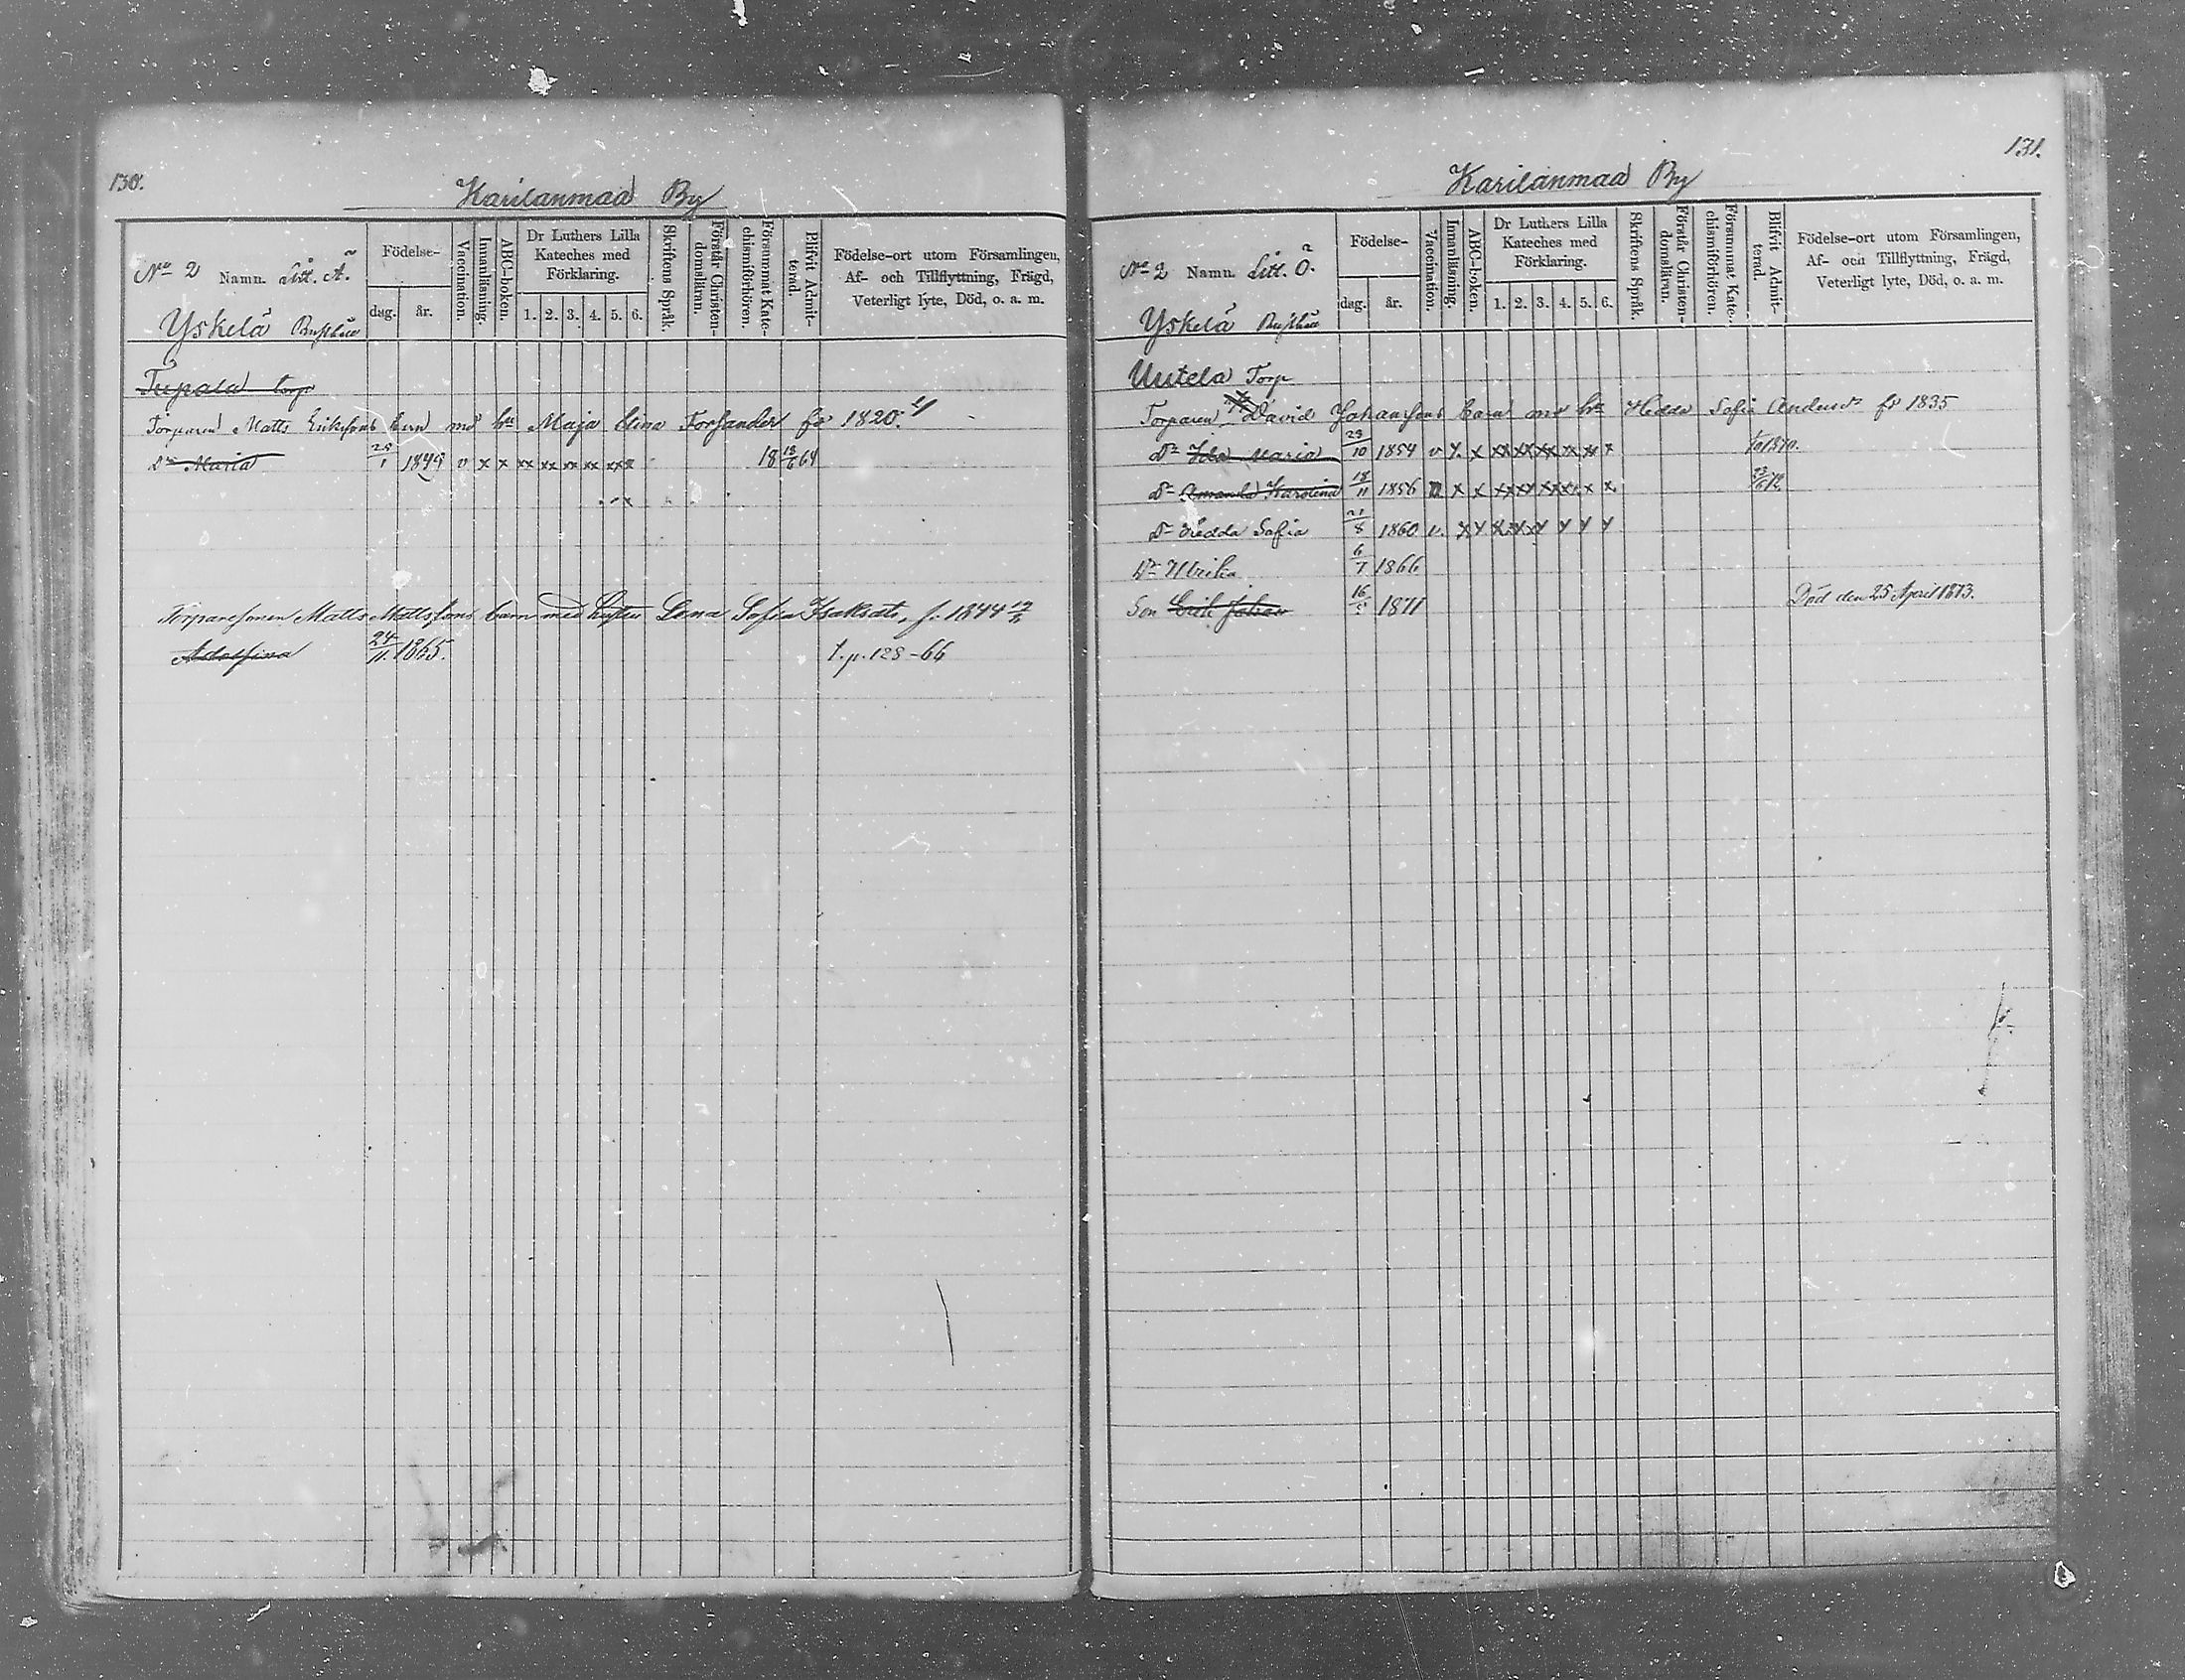 130.
Karilanmaa By
No 2 Namn. Litt. Ã.
Födelse-
dag.
år.
Vaccination.
Innanläsning.
ABC-boken.
Dr Luthers Lilla Kateches med Förklaring.
1. 2. 3. 4. 5. 6.
Skriftens Språk.
Förstår Christen-domsläran.
Försummat Kate-chismiförhören.
Blifvit Admit-terad.
Födelse-ort utom Församlingen,
Af- och Tillflyttning, Frägd,
Veterligt lyte, Död, o. a. m.
Yskelä
Tupala torp
Torparen Matts Eriksons barn med hu Maja Lina Forsander fö 1820.
Dr Maria 25/1 1849 v x x xx xx xx xx xxx 18 18/6 64
Torparesonen Matts Mattssons barn med hustru Lena Sofia Isaksdr, f. 1844
Adolfina 24/11 1865. t. p. 128-66
131.
Karilanmaa By
No 2 Namn. Litt. Õ.
Födelse-
dag.
år.
Vaccination.
Innanläsning.
ABC-boken.
Dr Luthers Lilla Kateches med Förklaring.
1. 2. 3. 4. 5. 6.
Skriftens Språk.
Förstår Christen-domsläran.
Försummat Kate-chismiförhören.
Blifvit Admit-terad.
Födelse-ort utom Församlingen,
Af- och Tillflyttning, Frägd,
Veterligt lyte, Död, o. a. m.
Yskelä
Uutela Torp
Torparen David Johanssons barn med hu Hedda Sofia Andersdr fö 1835
Dr Ida Maria 23/10 1854 v x x xx xx xx x x x 1870.
Dr Amanda Karolina 18/11 1856 x x xx xx xx x x x
Dr Hedda Sofia 21/8 1860 v. x x x x x x x x
Dr Ulrika 6/7 1866
Son Erik Johan 16/5 1871 Död den 25 April 1873.